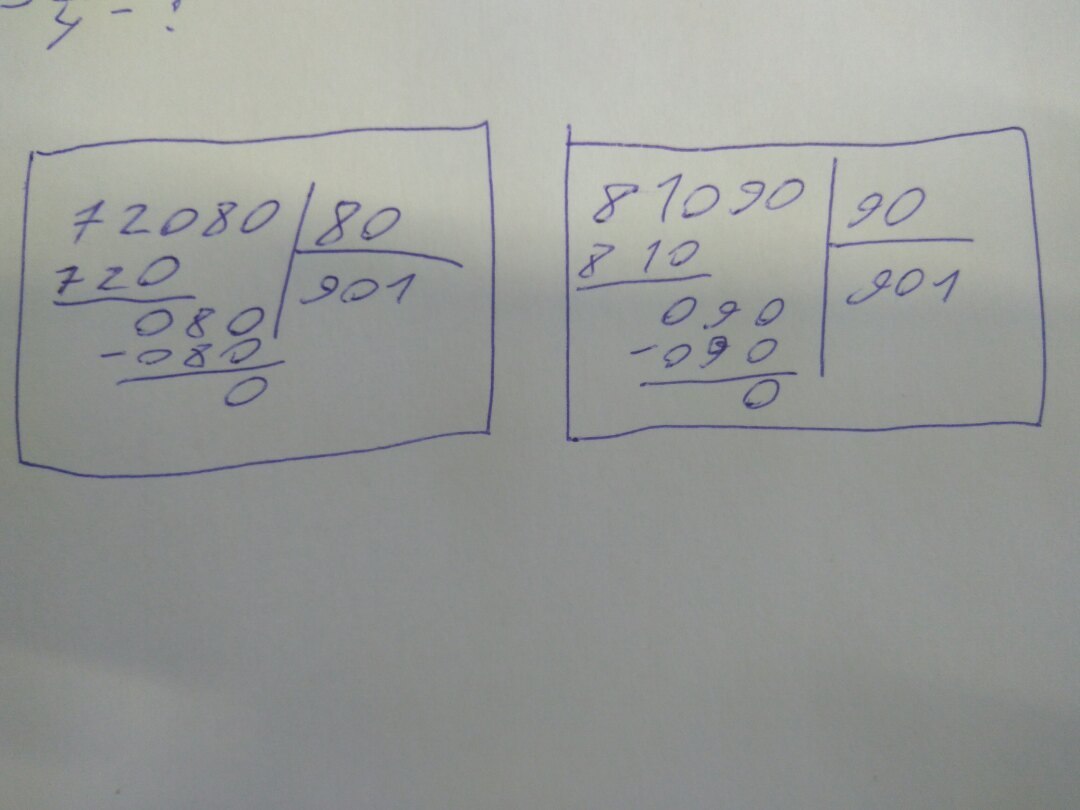 72080 80
720 901
080
-080
0
81090 90
810 901
090
-090
0